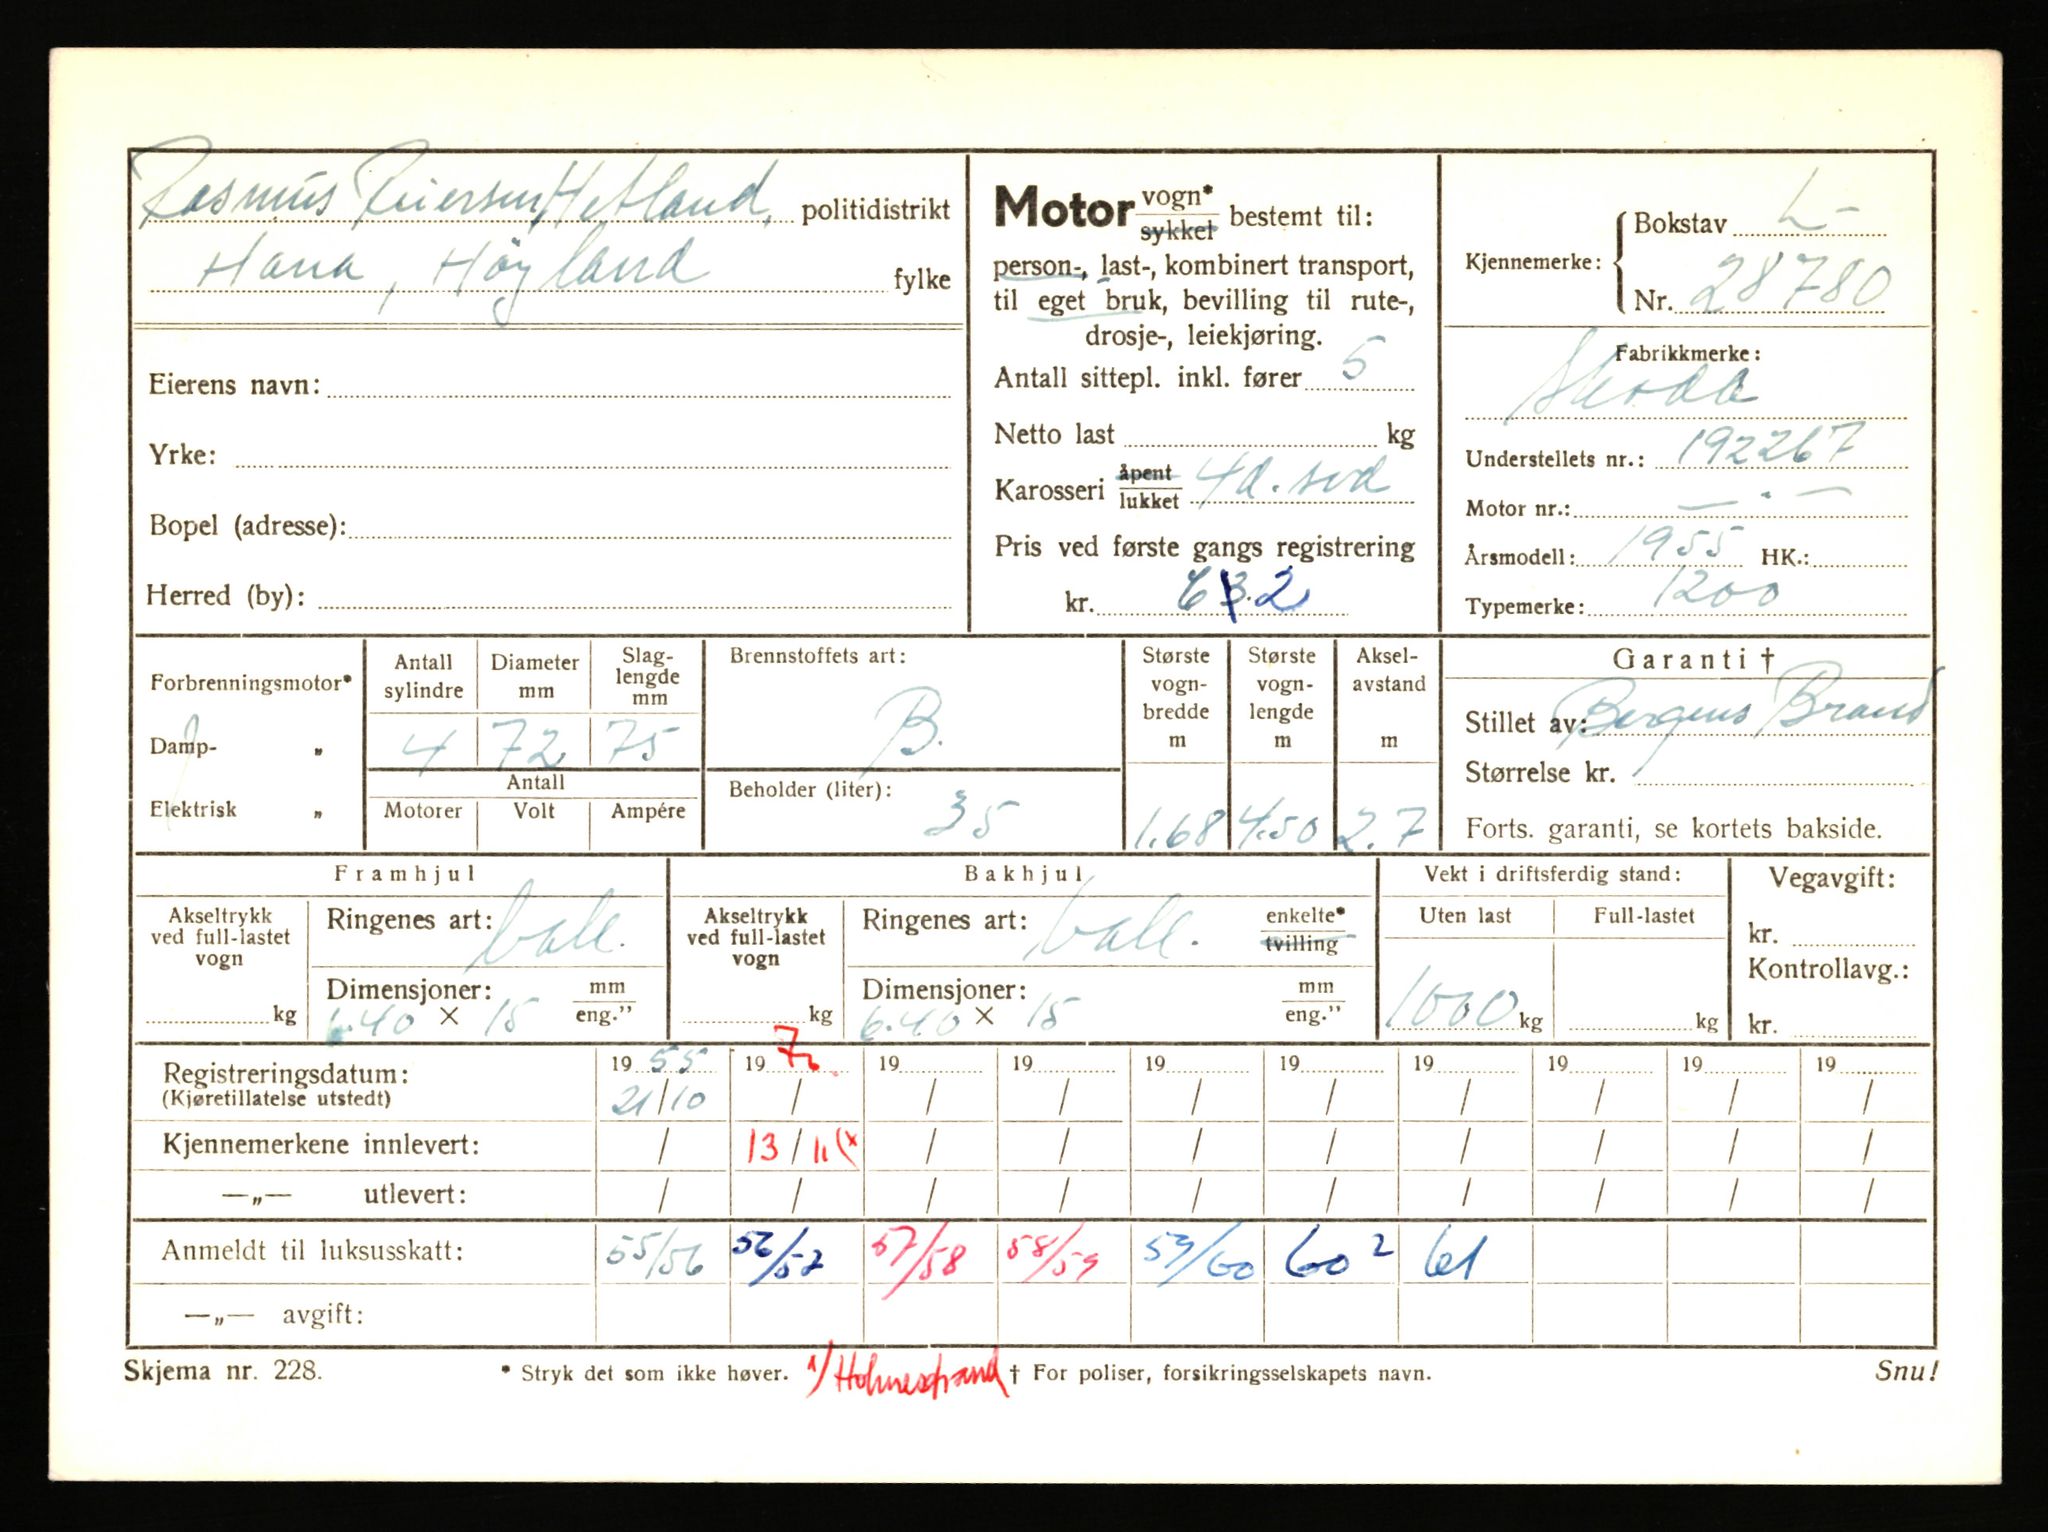 Rasmus Reiersen Hetland, politidistrikt
Hana, Höyland fylke
Eierens navn:
Yrke:
Bopel (adresse):
Herred (by):
Motor vogn* sykkel bestemt til:
person-, last-, kombinert transport,
til eget bruk, bevilling til rute-,
drosje-, leiekjøring.
Antall sittepl. inkl. fører 5
Netto last kg
Karosseri åpent lukket 4d. sed
Pris ved første gangs registrering
kr.
Kjennemerke: Bokstav L-
Nr. 28780
Fabrikkmerke:
Skoda
Understellets nr.: 192267
Motor nr.: — " —
Årsmodell: 1955 HK.:
Typemerke: 1200
Forbrenningsmotor*
Damp- „
Elektrisk „
Antall sylindre 4
Diameter mm 72
Slag-lengde mm 75
Antall
Motorer Volt Ampére
Brennstoffets art:
B.
Beholder (liter): 35
Største vogn-bredde m 1.68
Største vogn-lengde m 4.50
Aksel-avstand m 2.7
Garanti †
Stillet av: Bergens Brand
Størrelse kr.
Forts. garanti, se kortets bakside.
Framhjul
Akseltrykk ved full-lastet vogn kg
Ringenes art: ball.
Dimensjoner: mm eng.”
6.40 × 15
Bakhjul
Akseltrykk ved full-lastet vogn kg
Ringenes art: ball. enkelte* tvilling
Dimensjoner: mm eng.”
6.40 × 15
Vekt i driftsferdig stand:
Uten last Full-lastet
1000 kg kg
Vegavgift:
kr.
Kontrollavg.:
kr.
Registreringsdatum: 19 55 19 70 19 19 19 19 19 19 19 19
(Kjøretillatelse utstedt) 21/10 / / / / / / / / /
Kjennemerkene innlevert: / 13/11 (x / / / / / / / /
—„— utlevert: / / / / / / / / / /
Anmeldt til luksusskatt: 55/56 56/57 57/58 58/59 59/60 60² 61
—„— avgift:
Skjema nr. 228.
* Stryk det som ikke høver. x/ Holmestrand † For poliser, forsikringsselskapets navn.
Snu!